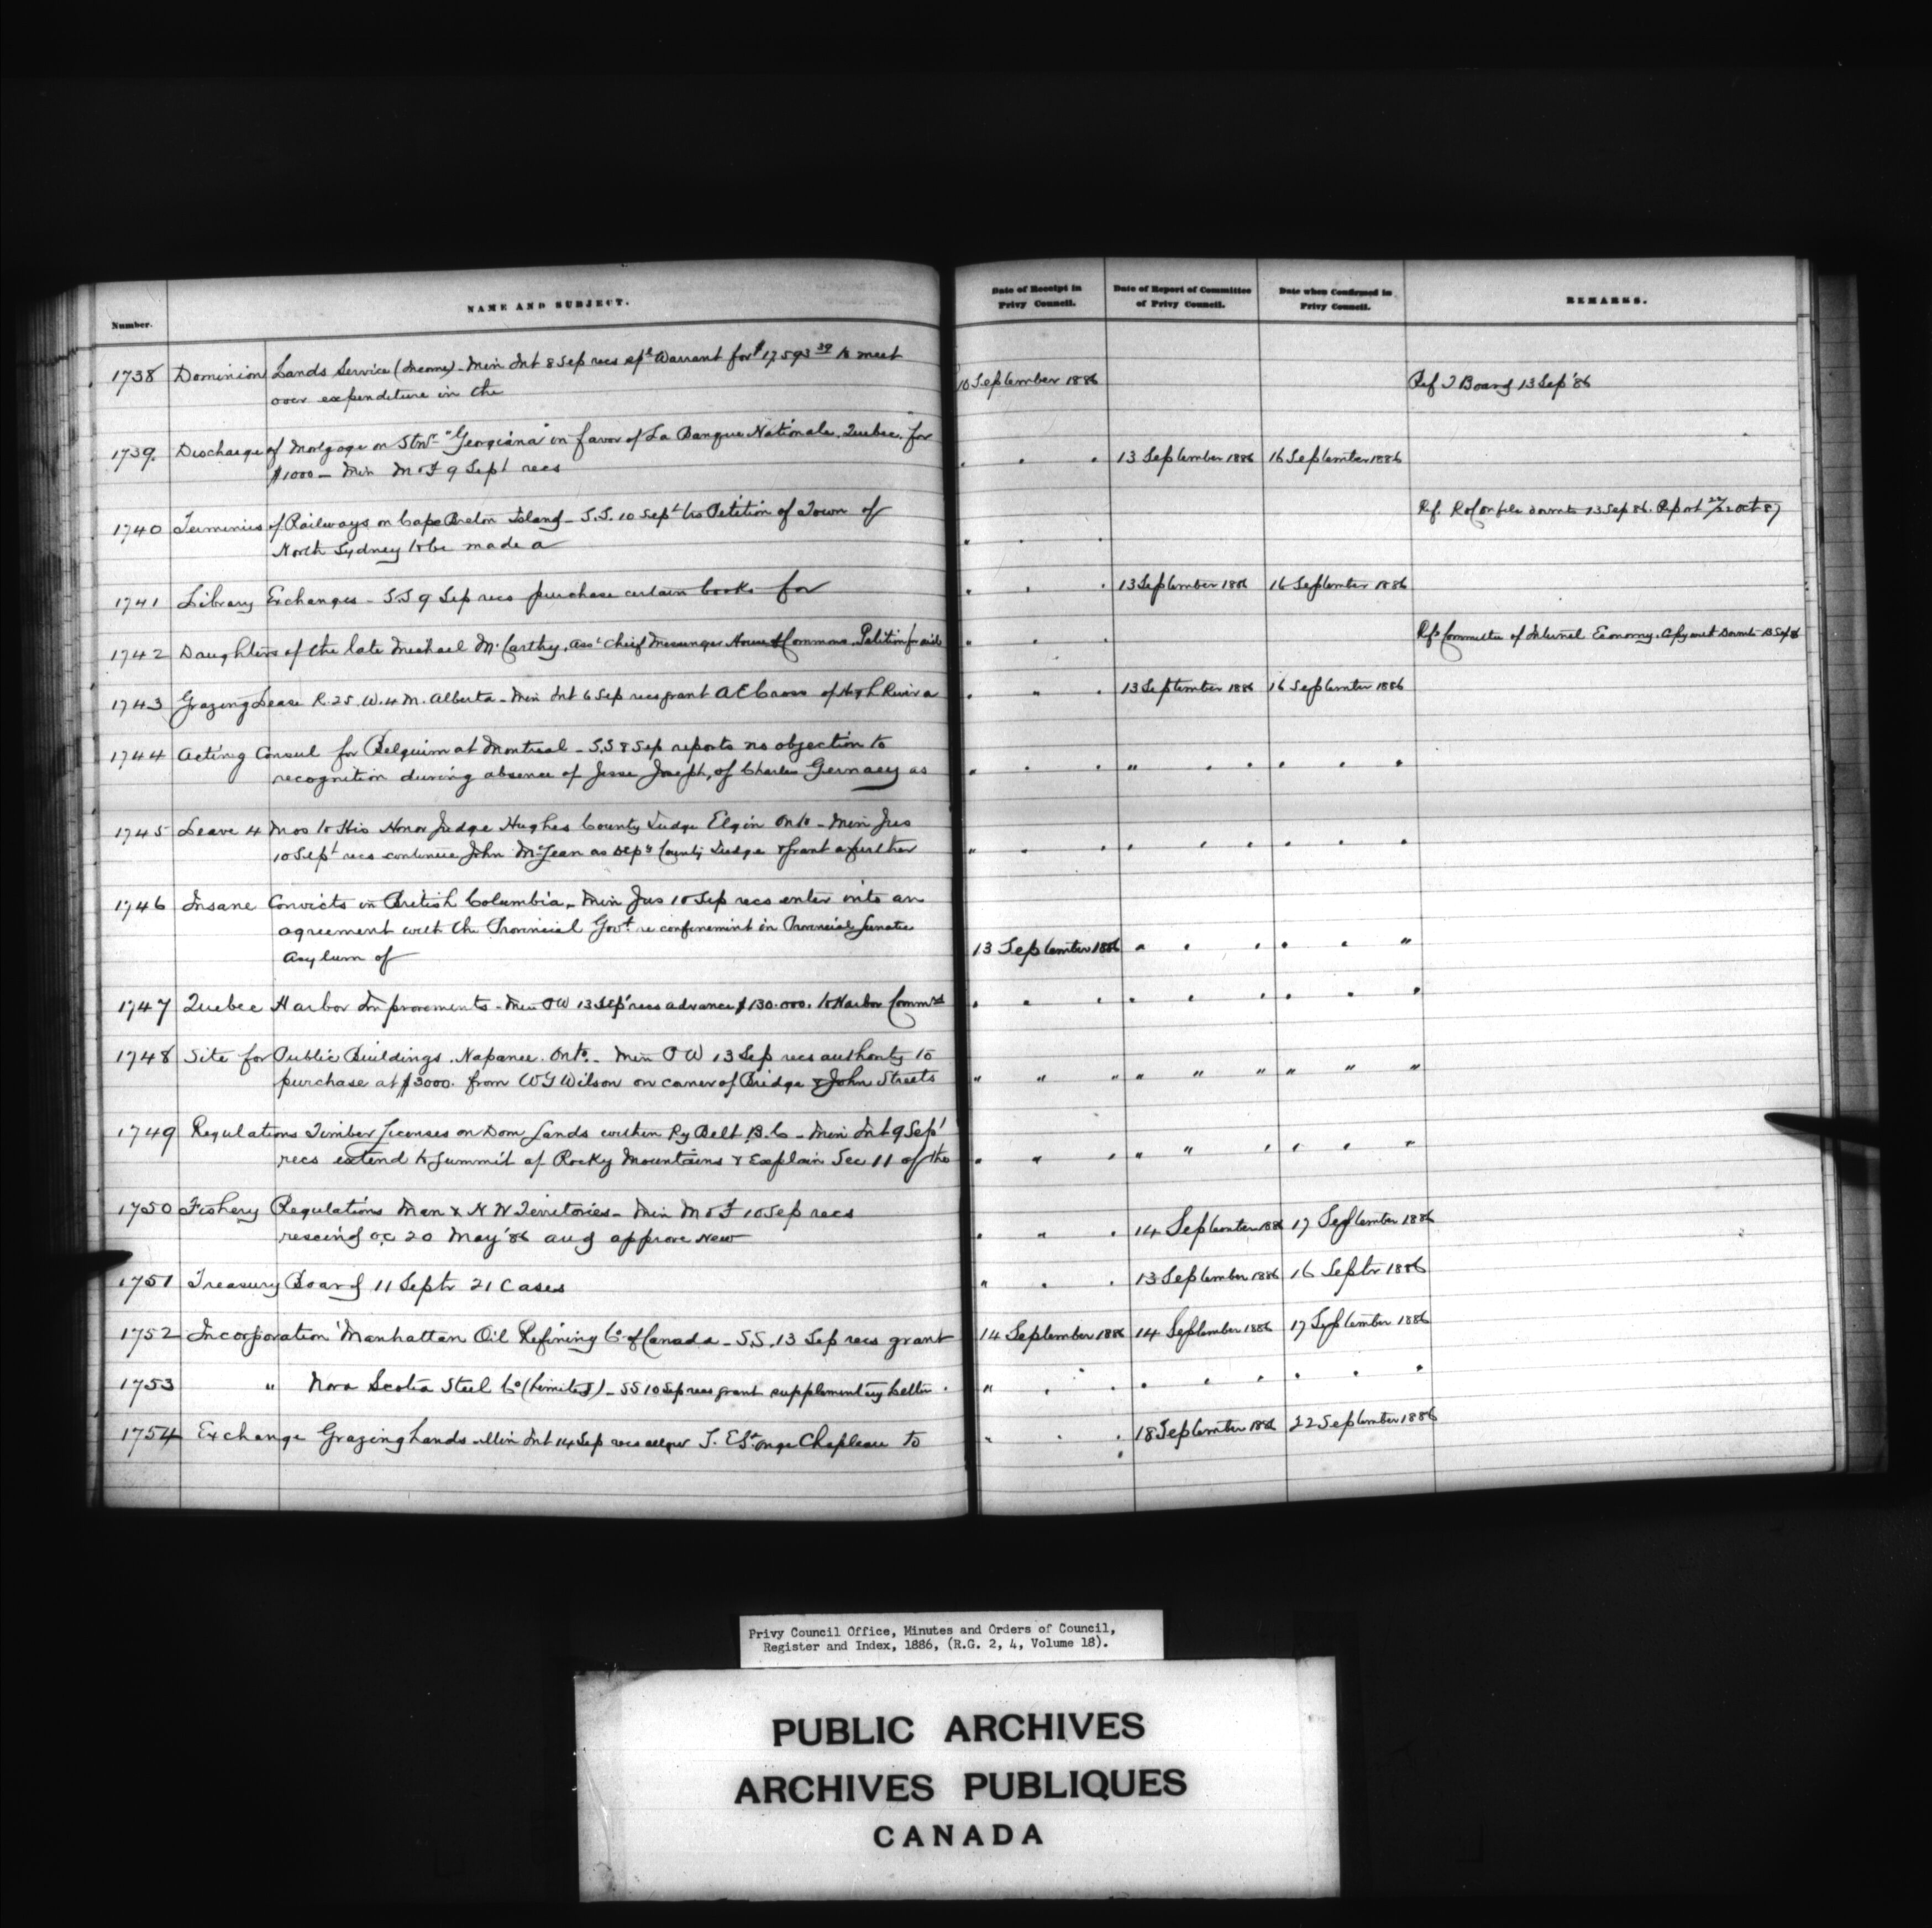 Number. NAME AND SUBJECT. Date of Receipt in Privy Council. Date of Report of Committee of Privy Council. Date when Confirmed in Privy Council. REMARKS.
1738 Dominion Lands Service (Income) - Min Int 8 Sep recs Warrant for $17593 39 to meet
over expenditure in the 10 September 1886 Ref T Board 13 Sep '86
1739. Discharge of Mortgage on Stmr "Georgiana" in favor of La Banque Nationale. Quebec. for
$1000 - Min M & F 9 Sept recs " " " 13 September 1886 16 September 1886
1740 Terminus of Railways on Cape Breton Island - S.S. 10 Sept Petition of Town of Ref. 13 Sep 86. Report Oct 87
North Sydney to be made a " " "
1741 Library Exchanges - S.S 9 Sep recs purchase certain books for " " " 13 September 1886 16 September 1886
1742 Daughters of the late Michael McCarthy. Asst Chief Messenger House of Commons. Petition for aid " " " Committee of Internal Economy.
1743 Grazing Lease R. 25. W. 4 M. Alberta - Min Int 6 Sep recs grant A E Cross of High River a " " " 13 September 1886 16 September 1886
1744 Acting Consul for Belguim at Montreal - S.S 8 Sep reports no objection to
recognition during absence of Jesse Joseph, of Charles Gernaey as " " " " " " " " "
1745 Leave 4 Mos to His Honor Judge Hughes County Judge Elgin Onto - Min Jus
10 Sept recs continue John as Depy County Judge & grant a further " " " " " " " " "
1746 Insane Convicts in British Columbia - Min Jus 10 Sep recs enter into an
agreement with the Provincial Govt re confinement in Provincial Lunatic
Asylum of 13 September 1886 " " " " " "
1747 Quebec Harbor Improvements - Min P W 13 Sep recs advance $130.000. to Harbor Commrs " " " " " " " " "
1748 Site for Public Buildings. Napanee. Onto. - Min P W 13 Sep recs authority to
purchase at $3000. from W G Wilson on corner of Bridge & John Streets " " " " " " " " "
1749 Regulations Timber Licenses on Dom Lands within Ry Belt, B.C - Min Int 9 Sept
recs extend to Summit of Rocky Mountains & Explain Sec 11 of the " " " " " " " " "
1750 Fishery Regulations Man & N W Territories - Min M & F 10 Sep recs
rescind O.C 20 May '86 and approve New " " " 14 September 1886 17 September 1886
1751 Treasury Board 11 Septr 21 Cases " " " 13 September 1886 16 Septr 1886
1752 Incorporation Manhattan Oil Refining Co of Canada - S.S. 13 Sep recs grant 14 September 1886 14 September 1886 17 September 1886
1753 " Nova Scotia Steel Co (Limited) - SS 10 Sep recs grant supplementary letters " " " " " " " " "
1754 Exchange Grazing Lands - Min Int 14 Sep recs allow Chapleau to " " " 18 September 1886 22 September 1886
Privy Council Office, Minutes and Orders of Council,
Register and Index, 1886, (R.G. 2, 4, Volume 18).
PUBLIC ARCHIVES
ARCHIVES PUBLIQUES
CANADA